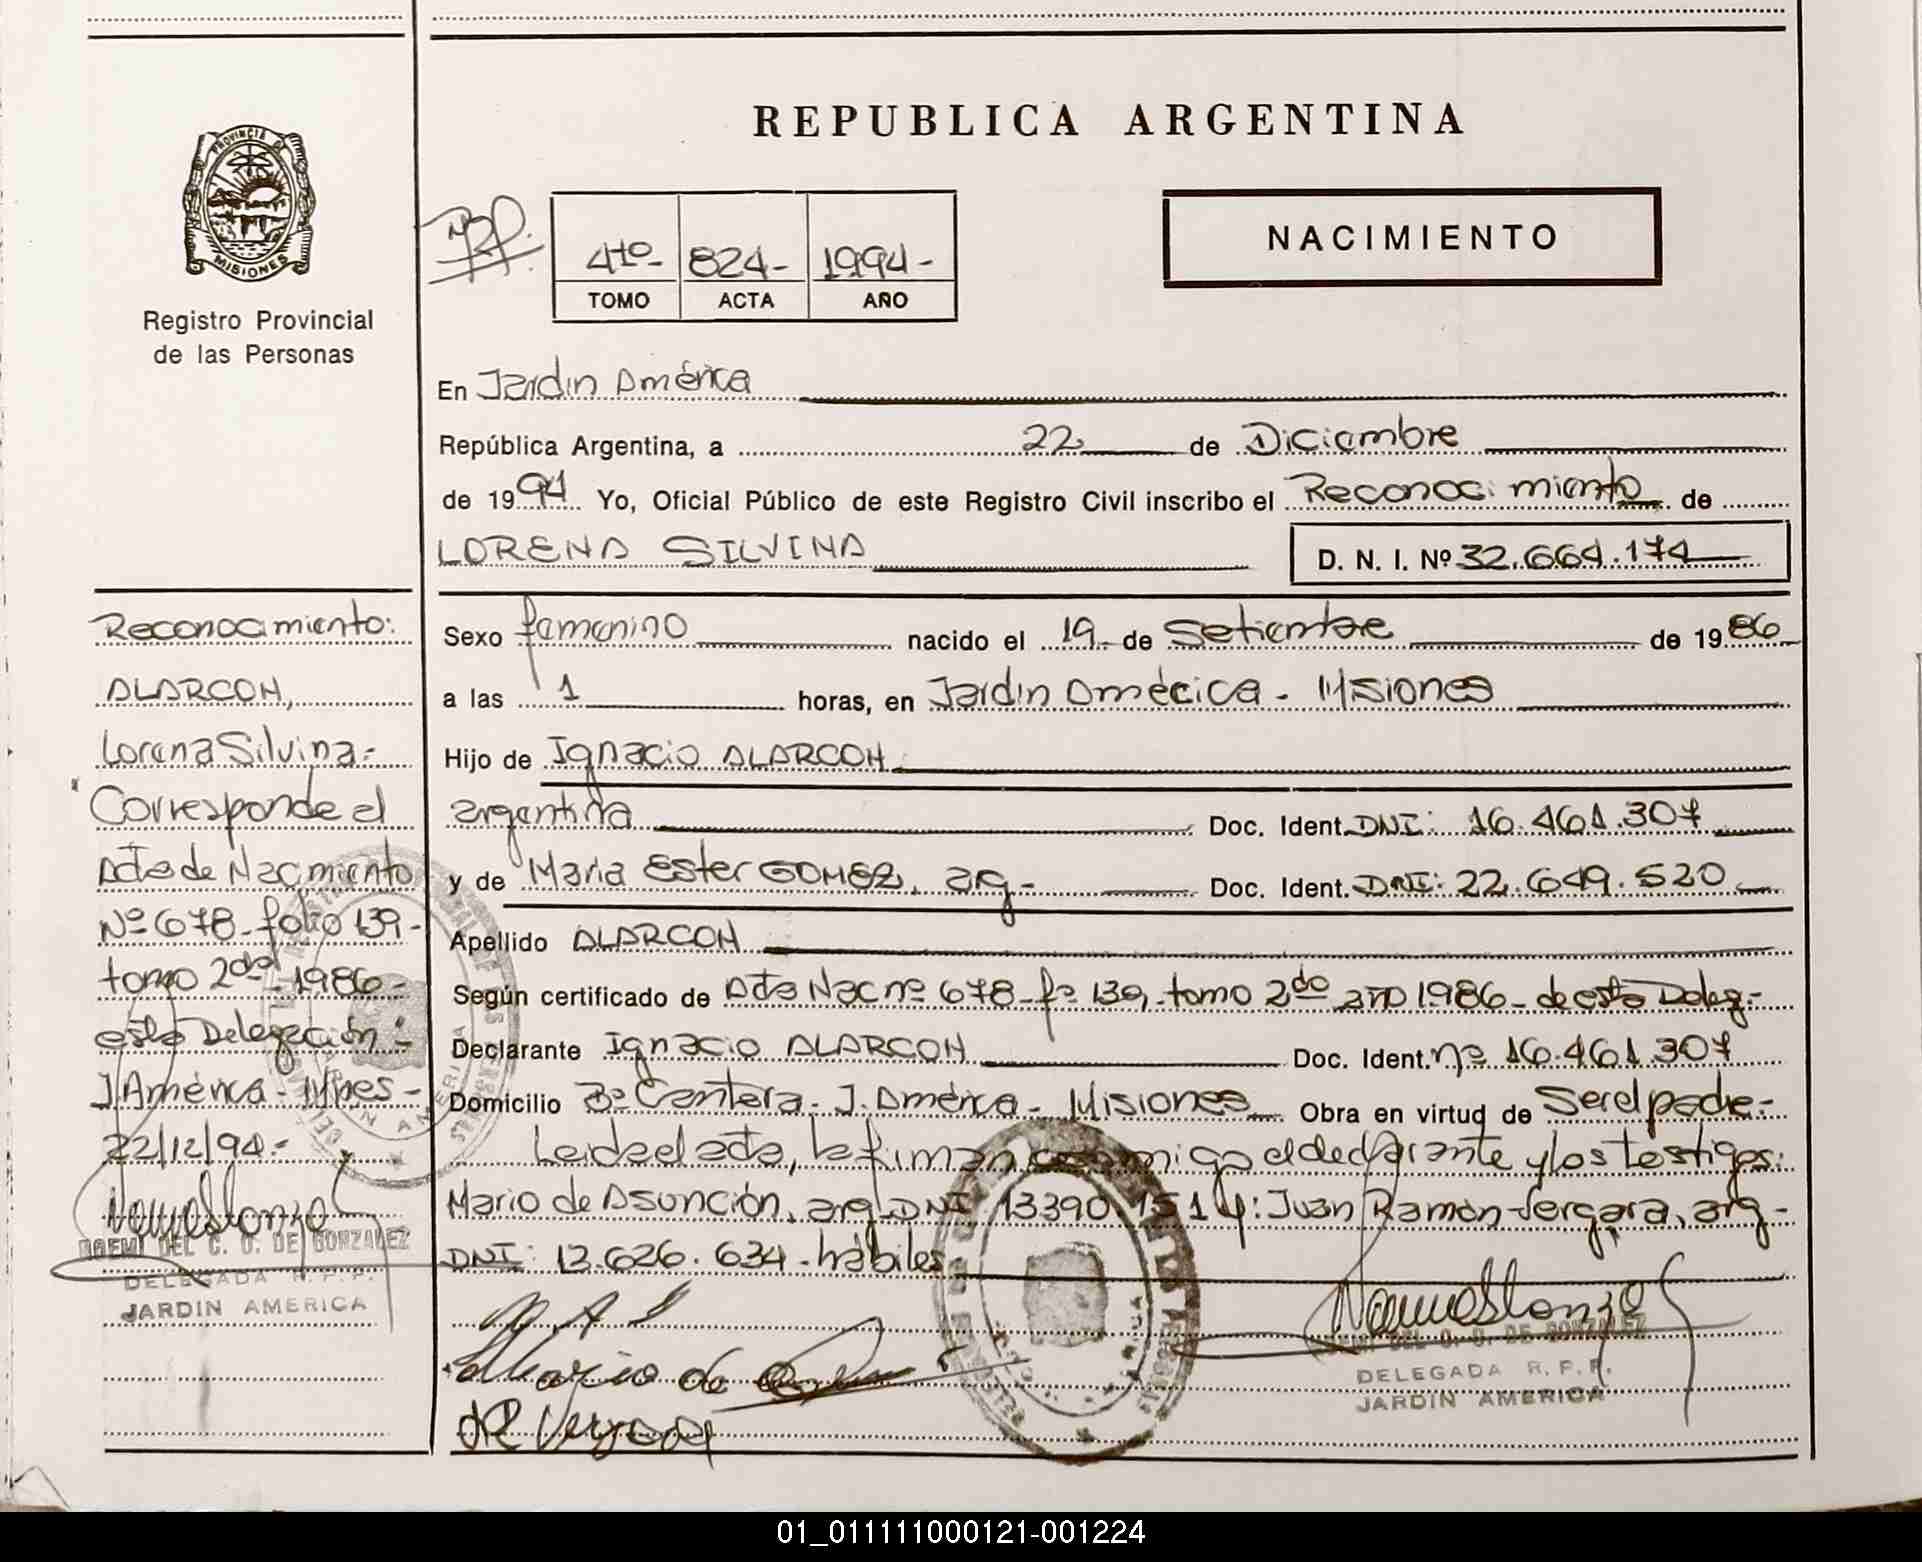 REPUBLICA ARGENTINA
PROVINCIA D
MISIONES
Registro Provincial
de las Personas
4to- 824- 1994-
TOMO ACTA AÑO
NACIMIENTO
En Jardin América
República Argentina, a 22 de Diciembre
de 1994 Yo, Oficial Público de este Registro Civil inscribo el Reconocimiento de
LORENA SILVINA D. N. I. Nº 32.664.174
Sexo femenino nacido el 19 de Setiembre de 1986
a las 1 horas, en Jardin América - Misiones
Hijo de Ignacio ALARCON
argentina Doc. Ident. DNI: 16.461.307
y de Maria Ester GOMEZ, arg- Doc. Ident. DNI: 22.649.520
Apellido ALARCON
Según certificado de Acta Nac nº 678-fº 139, tomo 2do año 1986- de esta Deleg-
Declarante Ignacio ALARCON Doc. Ident. nº 16.461.307
Domicilio Bº Cantera - J. América - Misiones Obra en virtud de Ser el padre-
Leida el acta, la firman conmigo el declarante y los testigos:
Mario de Asunción, arg. DNI 13390.151 y: Juan Ramón Vergara, arg-
DNI: 13.626.634 - hábiles
Mario de
JR Vergara
NOEMI DEL C. O. DE GONZALEZ
DELEGADA R. P. P.
JARDIN AMERICA
Reconocimiento:
ALARCON,
Lorena Silvina-
Corresponde al
Acta de Nacimiento
Nº 678-folio 139-
tomo 2do-1986-
esta Delegación-
J. América - Mnes-
22/12/94-
NOEMI DEL C. O. DE GONZALEZ
DELEGADA R. P. P.
JARDIN AMERICA
01_011111000121-001224